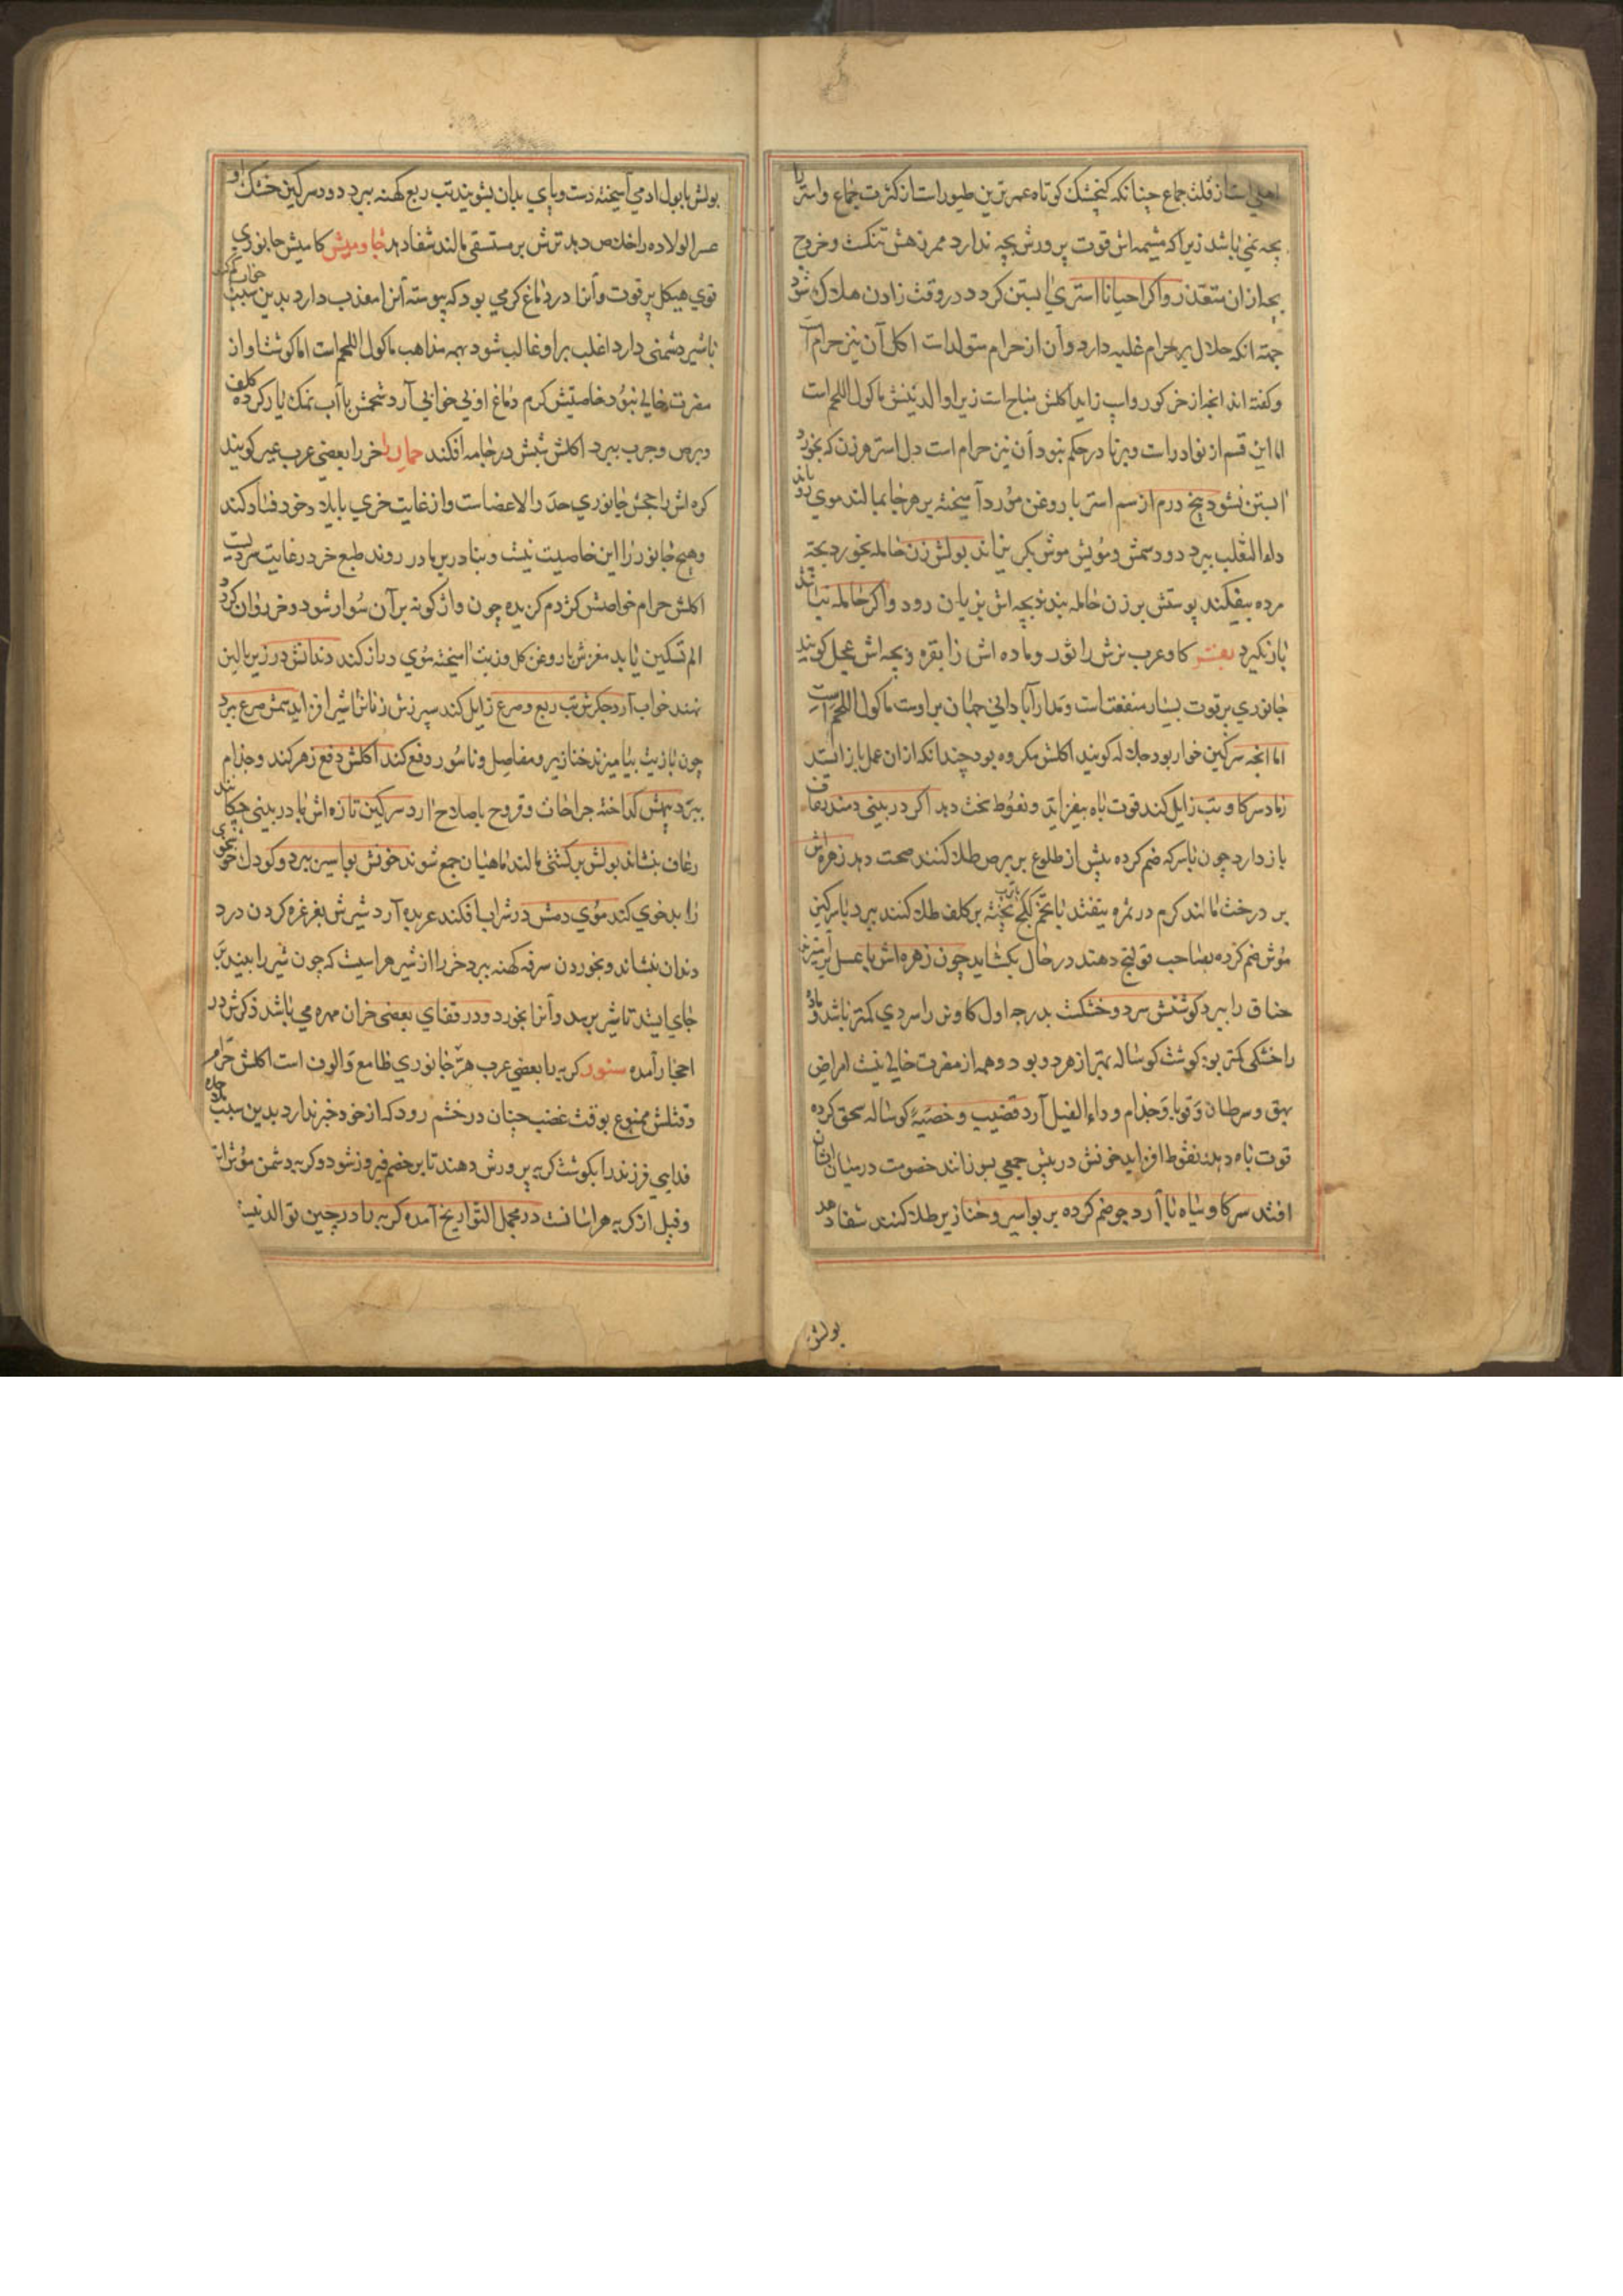 اهلی است از قلت جماع چنانکه کنجشک کوتاه عمرترین طیور است از کثرت جماع و استر را
بچه نمی باشد زیرا که مشیمه اش قوت پرورش بچه ندارد ممر زهش تنکست و خروج
بچه ازان متعذر و اکر احیانا استری ابستن کردد در وقت زادن هلاک شود
جهة انکه حلال بر حرام غلبه دارد و آن از حرام متولد است اکل آن نیز حرام است
و کفته اند انچه از خر کور و اسپ زاید اکلش مباح است زیرا والدینش ماکول اللحم است
اما این قسم از نوادر است و بر نادر حکم نبود آن نیز حرام است دل استر هر زن که بخورد
ابستن نشود پنج درم از سم استر با روغن مورد آمیخته بر هر جا بمالند موی برویاند
داء الثعلب ببرد دود سمش و مویش موش بکریزاند بولش زن حامله بخورد بچه
مرده بیفکند پوستش بر زن حامله بندند بچه اش بزیان رود و اکر حامله نباشد
بار نکیرد بقر کاو عرب نرش را ثور و ماده اش را بقره و بچه اش عجل کویند
جانوری پر قوت بسیار منفعتست و مدار آبادانی جهان بر اوست ماکول اللحم است
اما انچه سرکین خوار بود جلاله کویند اکلش مکروه بود چندانکه ازان عمل باز ایستد
رماد سر کاو تب زایل کند قوت باه بیفزاید و نعوظ سخت دهد اکر در بینی دمند رعاف
باز دارد چون با سرکه ضم کرده پیش از طلوع بر برص طلا کنند صحت دهد زهره اش
بر درخت مالند کرم در ثمره نیفتد با تخم بر کلف طلا کنند ببرد با سرکین
موش ضم کرده بصاحب قولنج دهند در حال بکشاید چون زهره اش با عسل بر آمیزند
خناق را ببرد کوشتش سرد و خشکست بدرجه اول کاوش را سردی کمتر باشد و ماده
را خشکی کمتر بود کوشت کوساله بهتر از هر دو بود و همه از مضرت خالی نیست امراض
بهق و سرطان و قوبا و جذام و داء الفیل آرد قضیب و خصیه کوساله سحق کرده
قوت باه دهد نعوظ افزاید خونش در پیش جمعی بسوزانند خصومت در میان ایشان
افتد سر کاو سیاه با آرد جو ضم کرده بر بواسیر و خنازیر طلا کنند شفا دهد
بولش
بولش با بول ادمی آمیخته دست و پای بدان بشویند تب ربع کهنه ببرد دود سرکین خشک او
عسر الولاده را خلاص دهد ترش بر مستسقی مالند شفا دهد جاومیش کامیش جانوری
قوی هیکل پر قوت و آنرا در دماغ کرمی بود که پیوسته آنرا معذب دارد بدین سبب
با شیر دشمنی دارد اغلب بر او غالب شود بهمه مذاهب ماکول اللحم است اما کوشت او از
مضرت خالی نبود خاصیتش کرم دماغ او بی خوابی آرد شحمش با آب نمک یار کرده کلف
و برص و جرب ببرد اکلش شپش در جامه افکند حمار را خر را بعضی عرب عیر کویند
کره اش را جحش جانوری حد را لاعضاست و از غایت خری با بلاد خود فساد کند
و هیچ جانور را این خاصیت نیست و بنادر بر مادر روند طبع خر در غایت سردیست
اکلش حرام خواصش کژدم کزیده چون واژکونه بر آن سوار شود و خر دوان کردد
الم تسکین یابد مغزش با روغن کل و زیت امیخته موی دراز کند دندانش در زیر بالین
نهند خواب آرد جکرش تب ربع و صرع زایل کند سپرزش زنانرا شیر افزاید سمش صرع ببرد
چون با زیت بیامیزند خنازیر و مفاصل و ناسور دفع کند اکلش دفع زهر کند و جذام
ببرد پیهش کداخته جراحات و قروح باصلاح ارد سرکین تازه اش با در بینی چکانند
رعاف بنشاند بولش بر کشتی مالند ماهیان جمع شوند خونش بواسیر ببرد و کودک خوی
را بدخوی کند موی دمش در شراب افکند عربده آرد شیرش بغرغره کردن درد
دندان بنشاند و بخوردن سرفه کهنه ببرد خر را از شیر هراسیست که چون شیر را بیند بر
جای ایستد تا شیر برسد و آنرا بخورد و در قفای بعضی خران مهره می باشد ذکرش در
احجار آمده سنور کربه را بعضی عرب هر جانوری طامع و الوف است اکلش حرام
و قتلش ممنوع بوقت غضب چنان در خشم رود که از خود خبر ندارد بدین سبب
فدایی فرزند را بکوشت کربه پرورش دهند تا بر خصم فیروز شود و کربه دشمن موش است
و فیل از کربه هراسانست در مجمل التواریخ آمده کربه را در چین توالد نیست